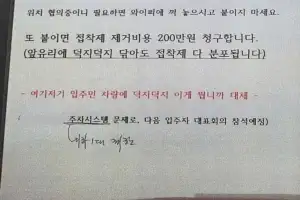 위치 협의중이니 필요하면 와이퍼에 껴 놓으시고 붙이지 마세요.
또 붙이면 접착제 제거비용 200만원 청구합니다.
(앞유리에 덕지덕지 닦아도 접착제 다 분포됩니다)
- 여기저기 입주민 차량에 덕지덕지 이게 뭡니까 대체 -
주차시스템 문제로, 다음 입주자 대표회의 참석예정)